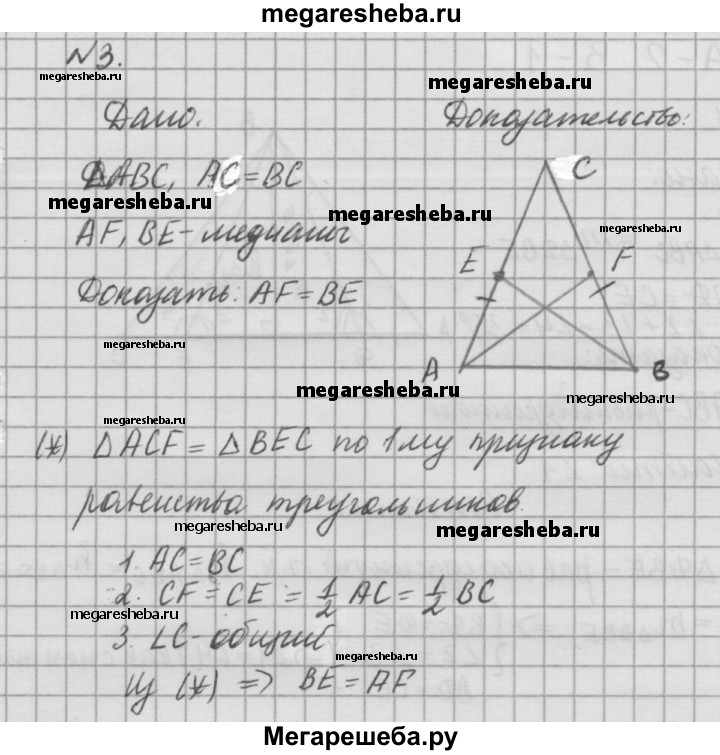 megaresheba.ru
№3.
megaresheba.ru
megaresheba.ru
Дано.
Доказательство:
ΔABC, AC=BC
C
megaresheba.ru
megaresheba.ru
megaresheba.ru
AF, BE-медианы
E
F
Доказать: AF=BE
megaresheba.ru
A
B
megaresheba.ru
megaresheba.ru
megaresheba.ru
(*) ΔACF = ΔBEC по 1му признаку
равенства треугольников.
megaresheba.ru
megaresheba.ru
1. AC=BC
2. CF=CE = 1/2 AC = 1/2 BC
megaresheba.ru
3. ∠C-общий
megaresheba.ru
Из (*) => BE=AF
Мегарешеба.ру